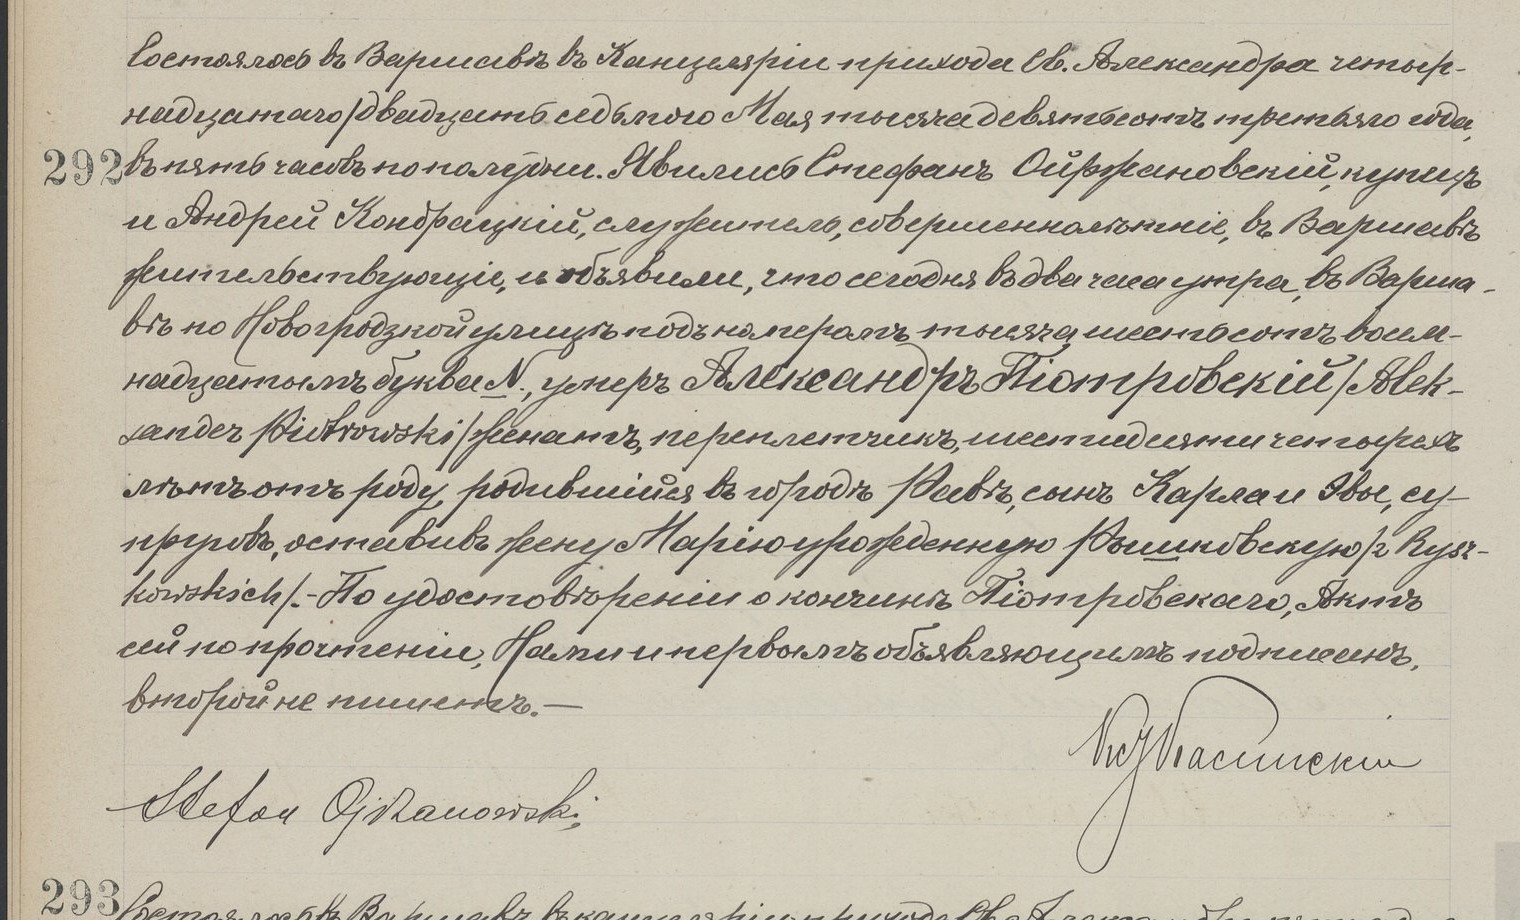 Состоялось въ Варшавѣ въ Канцеляріи прихода Св. Александра четыр-
надцатаго/двадцать седьмого Мая тысяча девятьсотъ третьяго года,
292 въ пять часовъ пополудни. Явились Стефанъ Ойржановскій, купецъ
и Андрей Кондрацкій, служитель, совершеннолѣтніе, въ Варшавѣ
жительствующіе, и объявили, что сегодня въ два часа утра, въ Варша-
вѣ по Новогродзкой улицѣ подъ номеромъ тысяча шестьсотъ восем-
надцатымъ буква N., умеръ Александръ Піотровскій /Alek-
sander Piotrowski/ женатъ, переплетчикъ, шестидесяти четырехъ
лѣтъ отъ роду, родившійся въ городѣ Равѣ, сынъ Карла и Эвы, су-
пруговъ, оставивъ жену Марію урожденную Рышковскую /z Rysz-
kowskich/.- По удостовѣреніи о кончинѣ Піотровскаго, Актъ
сей по прочтеніи, Нами и первымъ объявляющимъ подписанъ,
второй не пишетъ.—
Stefan Ojrzanowski
293 Состоялось въ Варшавѣ въ канцеляріи прихода Св. Александра